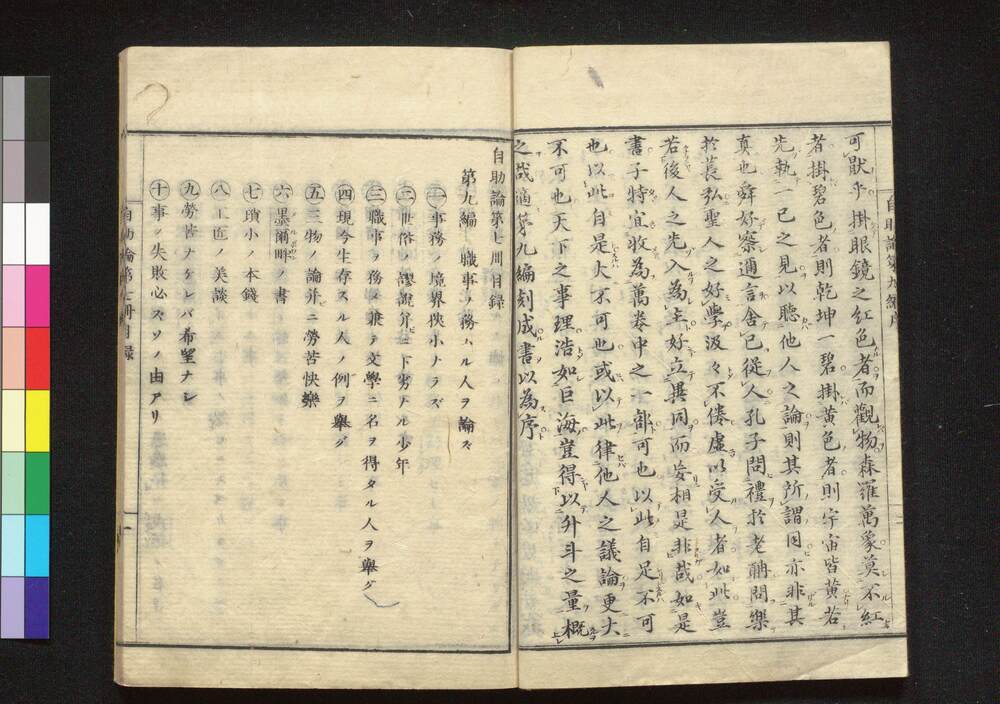 可獣乎掛眼鏡之紅色者而觀物森羅萬象莫不紅
者掛碧色者則乾坤一碧掛黄色者則宇宙皆黄若
先執一已之見以聽他人之論則其所謂同亦非其
真也舜好察邇言舍已從人孔子問禮於老聃問樂
於萇弘聖人之好學汲々不倦虚以受人者如此豈
若後人之先入為主好立異同而妄相是非哉如是
書子特宜收為萬卷中之一部可也以此自足不可
也以此自是大不可也或以此律他人之議論更大
不可也天下之事理浩如巨海豈得以升斗之量概
之哉適第九編刻成書以為序
自助論第七册目録
第九編 職事ヲ務ハル人ヲ論ズ
㊀事務ノ境界狹小ナラズ
㊁世俗ノ謬説并ニ下劣ナル少年
㊂職事ヲ務メテ兼テ文學ニ名ヲ得タル人ヲ舉グ
㊃現今生存スル人ノ例ヲ舉グ
㊄三物ノ論并ニ勞苦快樂
㊅墨爾畔ノ書
㊆瑣小ノ本錢
㊇工匠ノ美談
㊈勞苦ナケレバ希望ナシ
㊉事ノ失敗必ズソノ由アリ
自助論第七册目録
一